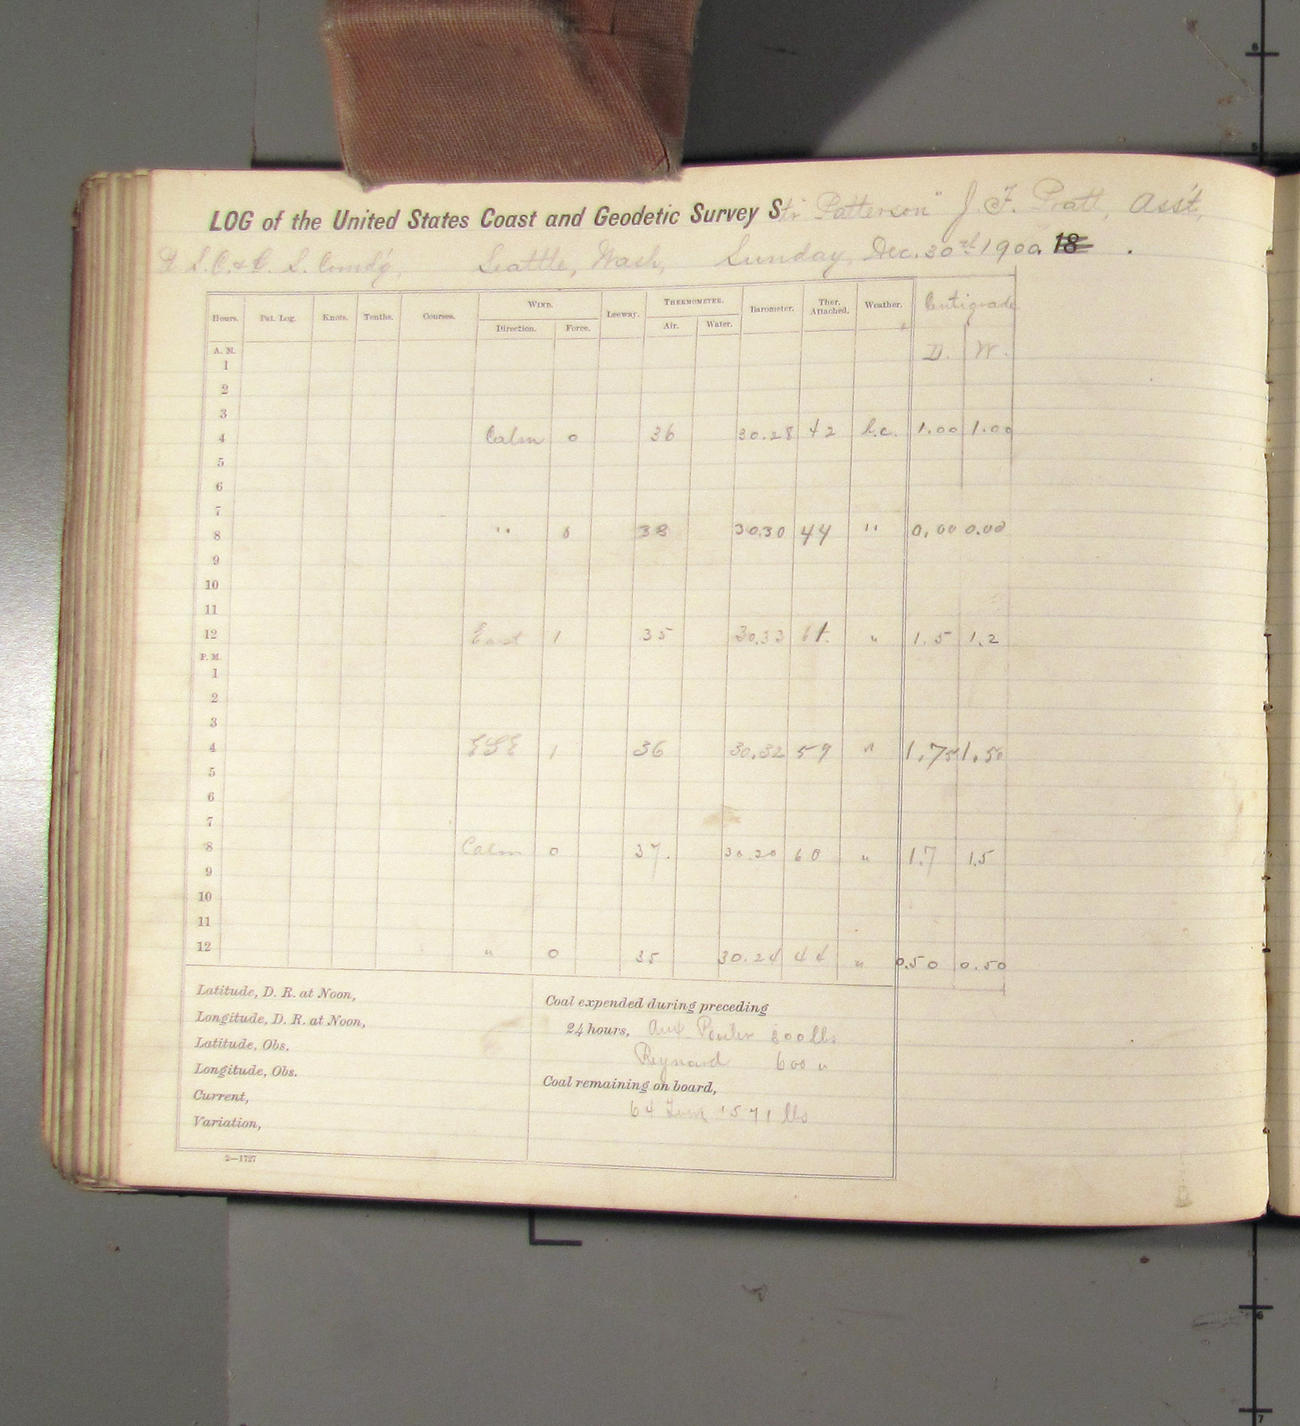 LOG of the United States Coast and Geodetic Survey Str "Patterson" J. F. Pratt, Ass't,
S. Comd'g, Seattle, Wash, Sunday, Dec. 30th 1900. 18 .
Hours. Pat. Log. Knots. Tenths. Courses. WIND. Leeway. THERMOMETER. Barometer. Ther. Attached. Weather. Centigrade
Direction. Force. Air. Water.
A. M. D. W.
1
2
3
4 Calm 0 36 30.28 42 b.c. 1.00 1.00
5
6
7
8 " 0 38 30.30 44 " 0.00 0.00
9
10
11
12 East 1 35 30.33 " 1.5 1.2
P. M.
1
2
3
4 ESE 1 36 30.32 59 " 1.75 1.50
5
6
7
8 Calm 0 37. 30.20 60 " 1.7 1.5
9
10
11
12 " 0 35 30.24 44 " 0.50 0.50
Latitude, D. R. at Noon,
Longitude, D. R. at Noon,
Latitude, Obs.
Longitude, Obs.
Current,
Variation,
Coal expended during preceding
24 hours, lbs
600 "
Coal remaining on board,
64 Tons 1571 lbs
2—1727
8
6
7